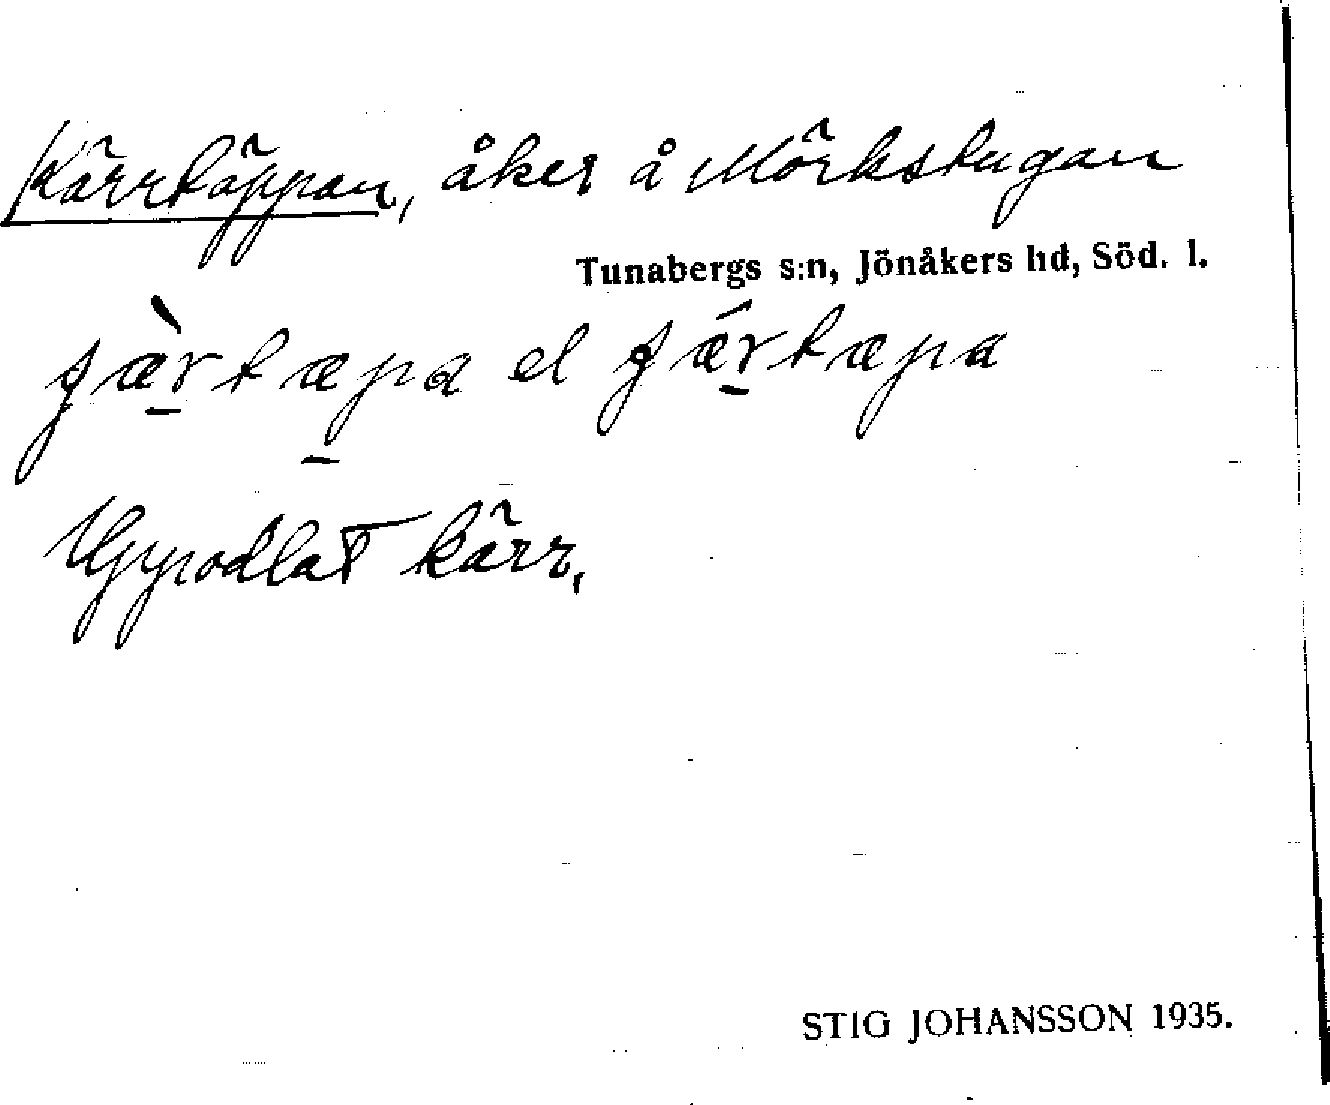 Kärrtäppan, åker å Mörkstugan
Tunabergs s:n, Jönåkers hd, Söd. l.
el
Uppodlat kärr.
STIG JOHANSSON 1935.